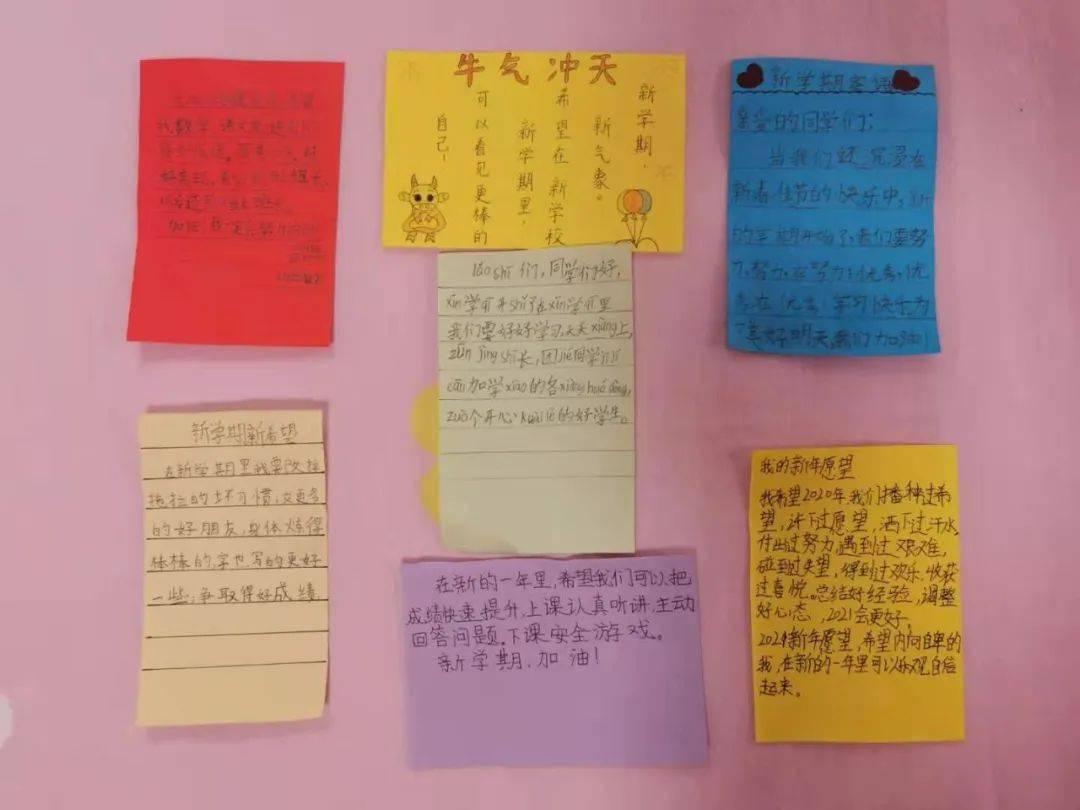 牛气冲天
新学期，
新气象。
希望在新学校
新学期里，
可以看见更棒的
自己！
新学期寄语
亲爱的同学们：
当我们还沉浸在
新春佳节的快乐中，新
的学期开始了，我们要努
力，努力，再努力；优秀，优
秀，在优秀！学习快乐为
了美好明天，我们加油！
我数学、语文
加油，我
lǎo shī们，同学们好，
xīn学可开shǐ了在xīn学可里
我们要好好学习，天天xiàng上，
zūn jìng shī长，团jié同学jījí
cān加学xiào的各xiàng huó dòng，
zuò个开心kuài lè的好学生。
新学期新希望
在新学期里我要改掉
拖拉的坏习惯，交更多
的好朋友，身体炼得
棒棒的，字也写的更好
一些，争取得好成绩
在新的一年里，希望我们可以把
成绩快速提升，上课认真听讲，主动
回答问题，下课安全游戏。
新学期，加油！
我的新年愿望
我希望2020年，我们播种过希
望，许下过愿望，洒下过汗水，
付出过努力，遇到过艰难，
碰到过失望，得到过欢乐，收获
过喜悦。总结好经验，调整
好心态，2021会更好。
2021新年愿望，希望内向自卑的
我，在新的一年里可以乐观自信
起来。